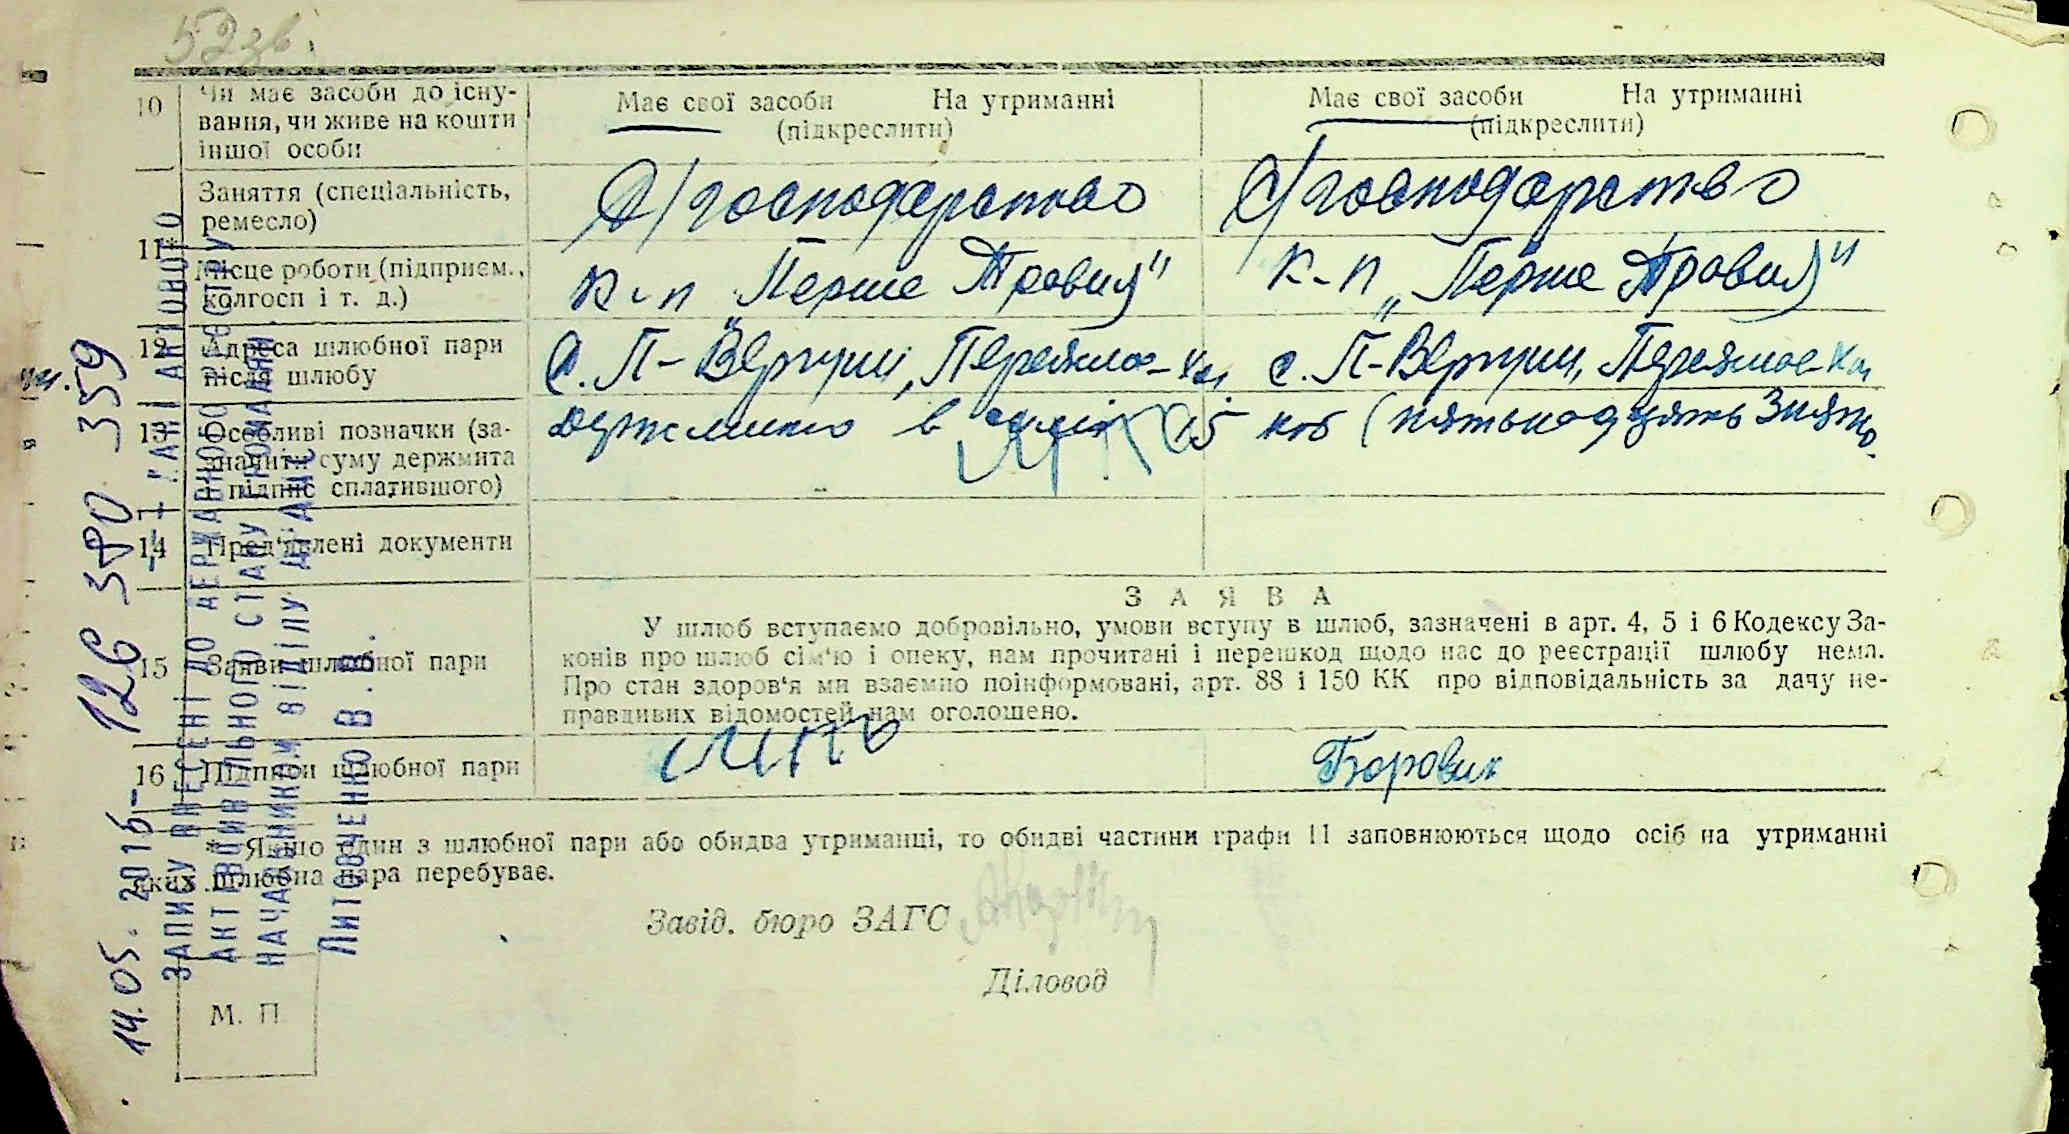 52зв.
10 Чи має засоби до існу-
вання, чи живе на кошти
іншої особи
Має свої засоби На утриманні
(підкреслити)
Має свої засоби На утриманні
(підкреслити)
11*
Заняття (спеціальність,
ремесло)
С/господарство
С/господарство
Місце роботи (підприєм.,
колгосп і т. д.)
К-п „Перше Травня"
К-п „Перше Травня"
12 Адреса шлюбної пари
після шлюбу
с. П-Вергуни, Переяслав-
с. П-Вергуни, Переяслав-
13 Особливі позначки (за-
значити суму держмита
і підпис сплатившого)
держмито в сумі 15 крб (пятьнадцять
14 Пред'явлені документи
15 Заяви шлюбної пари
ЗАЯВА
У шлюб вступаємо добровільно, умови вступу в шлюб, зазначені в арт. 4, 5 і 6 Кодексу За-
конів про шлюб сім'ю і опеку, нам прочитані і перешкод щодо нас до реєстрації шлюбу нема.
Про стан здоров'я ми взаємно поінформовані, арт. 88 і 150 КК про відповідальність за дачу не-
правдивих відомостей нам оголошено.
16 Підписи шлюбної пари
Боровик
* Якщо один з шлюбної пари або обидва утриманці, то обидві частини графи 11 заповнюються щодо осіб на утриманні
яких шлюбна пара перебуває.
Завід. бюро ЗАГС
Діловод
М. П
14.05. 2015- 126 380 359
ЗАПИСУ ВНЕСЕНІ ДО ДЕРЖАВНОГО РЕЄСТРУ
АКТІВ ЦИВІЛЬНОГО СТАНУ ГРОМАДЯН
НАЧАЛЬНИКОМ ВІДДІЛУ ДРАЦС
ЛИТОВЧЕНКО В.В.